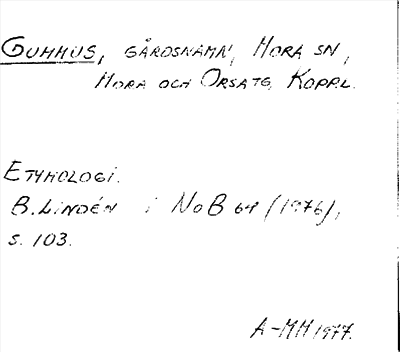 GUMMUS, GÅRDSNAMN, MORA SN,
MORA OCH ORSA TG, KOPP.L.
ETYMOLOGI.
B. LINDÉN i NoB 64 (1976),
s. 103.
A-MM 1977.